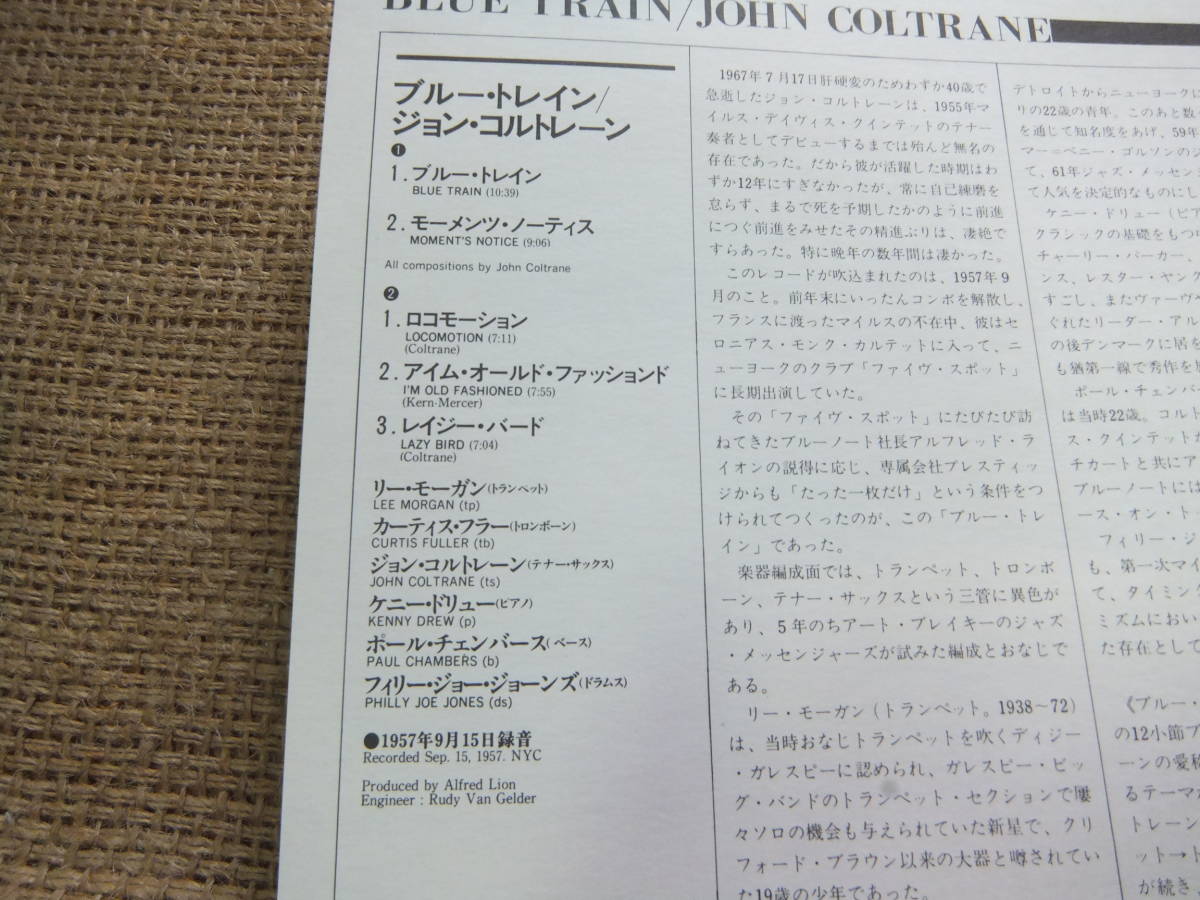 BLUE TRAIN/JOHN COLTRANE
ブルー・トレイン/
ジョン・コルトレーン
❶
1. ブルー・トレイン
BLUE TRAIN (10:39)
2. モーメンツ・ノーティス
MOMENT'S NOTICE (9:06)
All compositions by John Coltrane
❷
1. ロコモーション
LOCOMOTION (7:11)
(Coltrane)
2. アイム・オールド・ファッションド
I'M OLD FASHIONED (7:55)
(Kern-Mercer)
3. レイジー・バード
LAZY BIRD (7:04)
(Coltrane)
リー・モーガン(トランペット)
LEE MORGAN (tp)
カーティス・フラー(トロンボーン)
CURTIS FULLER (tb)
ジョン・コルトレーン(テナー・サックス)
JOHN COLTRANE (ts)
ケニー・ドリュー(ピアノ)
KENNY DREW (p)
ポール・チェンバース(ベース)
PAUL CHAMBERS (b)
フィリー・ジョー・ジョーンズ(ドラムス)
PHILLY JOE JONES (ds)
●1957年9月15日録音
Recorded Sep. 15, 1957. NYC
Produced by Alfred Lion
Engineer : Rudy Van Gelder
1967年7月17日肝硬変のためわずか40歳で
急逝したジョン・コルトレーンは、1955年マ
イルス・デイヴィス・クインテットのテナー
奏者としてデビューするまでは殆んど無名の
存在であった。だから彼が活躍した時期はわ
ずか12年にすぎなかったが、常に自己練磨を
怠らず、まるで死を予期したかのように前進
につぐ前進をみせたその精進ぶりは、凄絶で
すらあった。特に晩年の数年間は凄かった。
このレコードが吹込まれたのは、1957年9
月のこと。前年末にいったんコンボを解散し、
フランスに渡ったマイルスの不在中、彼はセ
ロニアス・モンク・カルテットに入って、ニ
ューヨークのクラブ「ファイヴ・スポット」
に長期出演していた。
その「ファイヴ・スポット」にたびたび訪
ねてきたブルーノート社長アルフレッド・ラ
イオンの説得に応じ、専属会社プレスティッ
ジからも「たった一枚だけ」という条件をつ
けられてつくったのが、この「ブルー・トレ
イン」であった。
楽器編成面では、トランペット、トロンボ
ーン、テナー・サックスという三管に異色が
あり、5年のちアート・ブレイキーのジャズ
・メッセンジャーズが試みた編成とおなじで
ある。
リー・モーガン(トランペット。1938〜72)
は、当時おなじトランペットを吹くディジー
・ガレスピーに認められ、ガレスピー・ビッ
グ・バンドのトランペット・セクションで屢
々ソロの機会も与えられていた新星で、クリ
フォード・ブラウン以来の大器と噂されてい
た19歳の少年であった。
デトロイトからニューヨークに
りの22歳の青年。このあと数
を通じて知名度をあげ、59年
マー=ベニー・ゴルソンのジ
て、61年ジャズ・メッセンジ
て人気を決定的なものにし
ケニー・ドリュー(ピア
クラシックの基礎をもつ
チャーリー・パーカー、
ンス、レスター・ヤング
すごし、またヴァーヴ
ぐれたリーダー・アル
の後デンマークに居を
も猶第一線で秀作を
ポール・チェンバ
は当時22歳。コルト
ス・クインテットカ
チカートと共にア
ブルーノートには
ース・オン・ト
フィリー・ジ
も、第一次マイ
て、タイミン
ミズムにおい
た存在として
《ブルー・
の12小節ブ
ーンの愛称
るテーマ
トレーン
ット→ト
が続き、